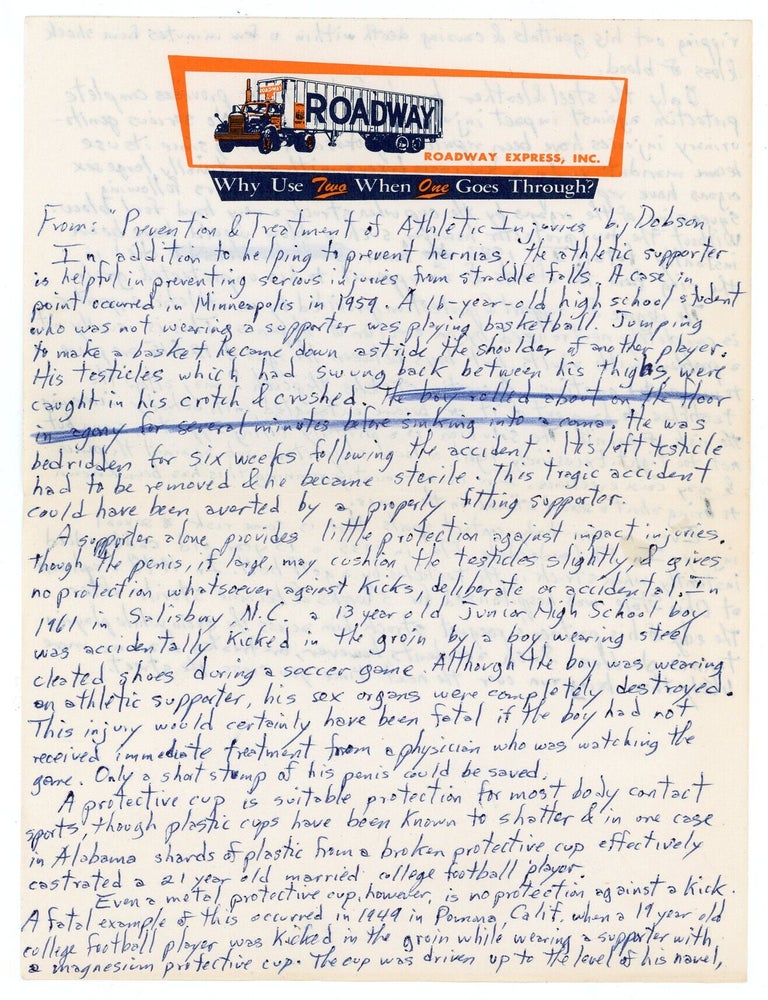 ROADWAY
ROADWAY EXPRESS, INC.
Why Use Two When One Goes Through?
From: "Prevention & Treatment of Athletic Injuries" by Dobson
In addition to helping to prevent hernias, the athletic supporter
is helpful in preventing serious injuries from straddle falls. A case in
point occurred in Minneapolis in 1959. A 16-year-old high school student
who was not wearing a supporter was playing basketball. Jumping
to make a basket he came down astride the shoulder of another player.
His testicles which had swung back between his thighs were
caught in his crotch & crushed. The boy rolled about on the floor
in agony for several minutes before sinking into a coma. He was
bedridden for six weeks following the accident. His left testicle
had to be removed & he became sterile. This tragic accident
could have been averted by a properly fitting supporter.
A supporter alone provides little protection against impact injuries.
Though the penis, if large, may cushion the testicles slightly, it gives
no protection whatsoever against kicks, deliberate or accidental. In
1961 in Salisbury, N.C. a 13 year old Junior High School boy
was accidentally kicked in the groin by a boy wearing steel
cleated shoes during a soccer game. Although the boy was wearing
an athletic supporter, his sex organs were completely destroyed.
This injury would certainly have been fatal if the boy had not
received immediate treatment from a physician who was watching the
game. Only a short stump of his penis could be saved.
A protective cup is suitable protection for most body contact
sports, though plastic cups have been known to shatter & in one case
in Alabama shards of plastic from a broken protective cup effectively
castrated a 21 year old married college football player.
Even a metal protective cup, however, is no protection against a kick.
A fatal example of this occurred in 1949 in Pomona, Calif. when a 19 year old
college football player was kicked in the groin while wearing a supporter with
a magnesium protective cup. The cup was driven up to the level of his navel,